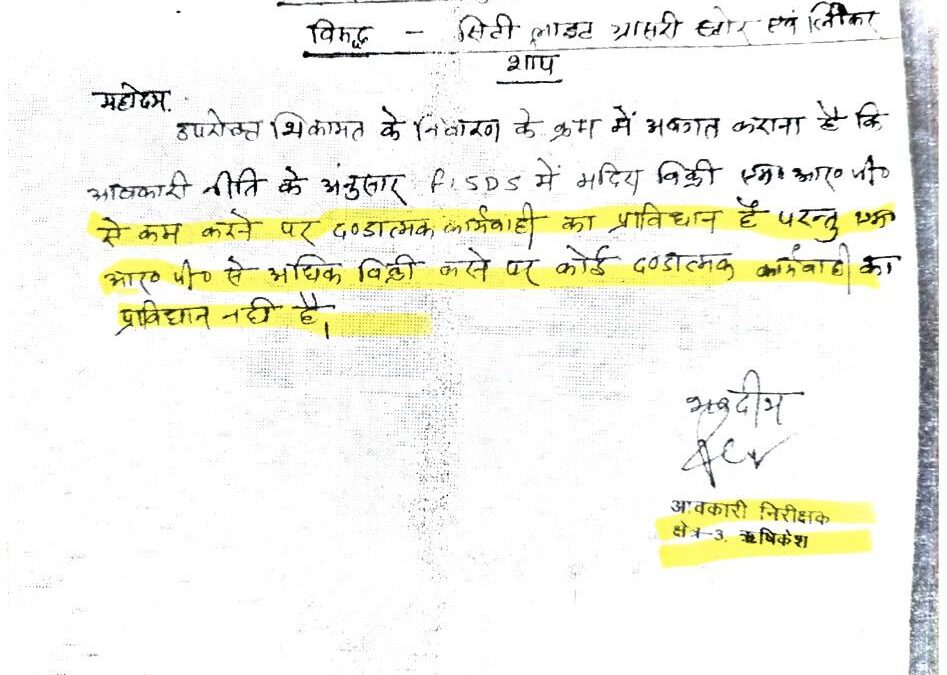 विरुद्ध - सिटी लाइट ग्रासरी स्टोर एवं लिकर
शाप
महोदय,
उपरोक्त शिकायत के निवारण के क्रम में अवगत कराना है कि
आबकारी नीति के अनुसार FLSDS में मदिरा बिक्री एम० आर० पी०
से कम करने पर दण्डात्मक कार्यवाही का प्राविधान है परन्तु एम०
आर० पी० से अधिक बिक्री करने पर कोई दण्डात्मक कार्यवाही का
प्राविधान नही है।
भवदीय
आबकारी निरीक्षक
क्षेत्र-3, ऋषिकेश